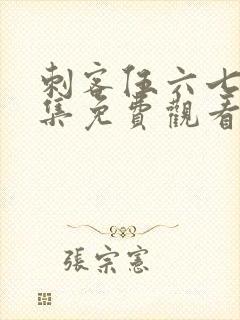 刺客伍六七
集免費觀看
張宗憲